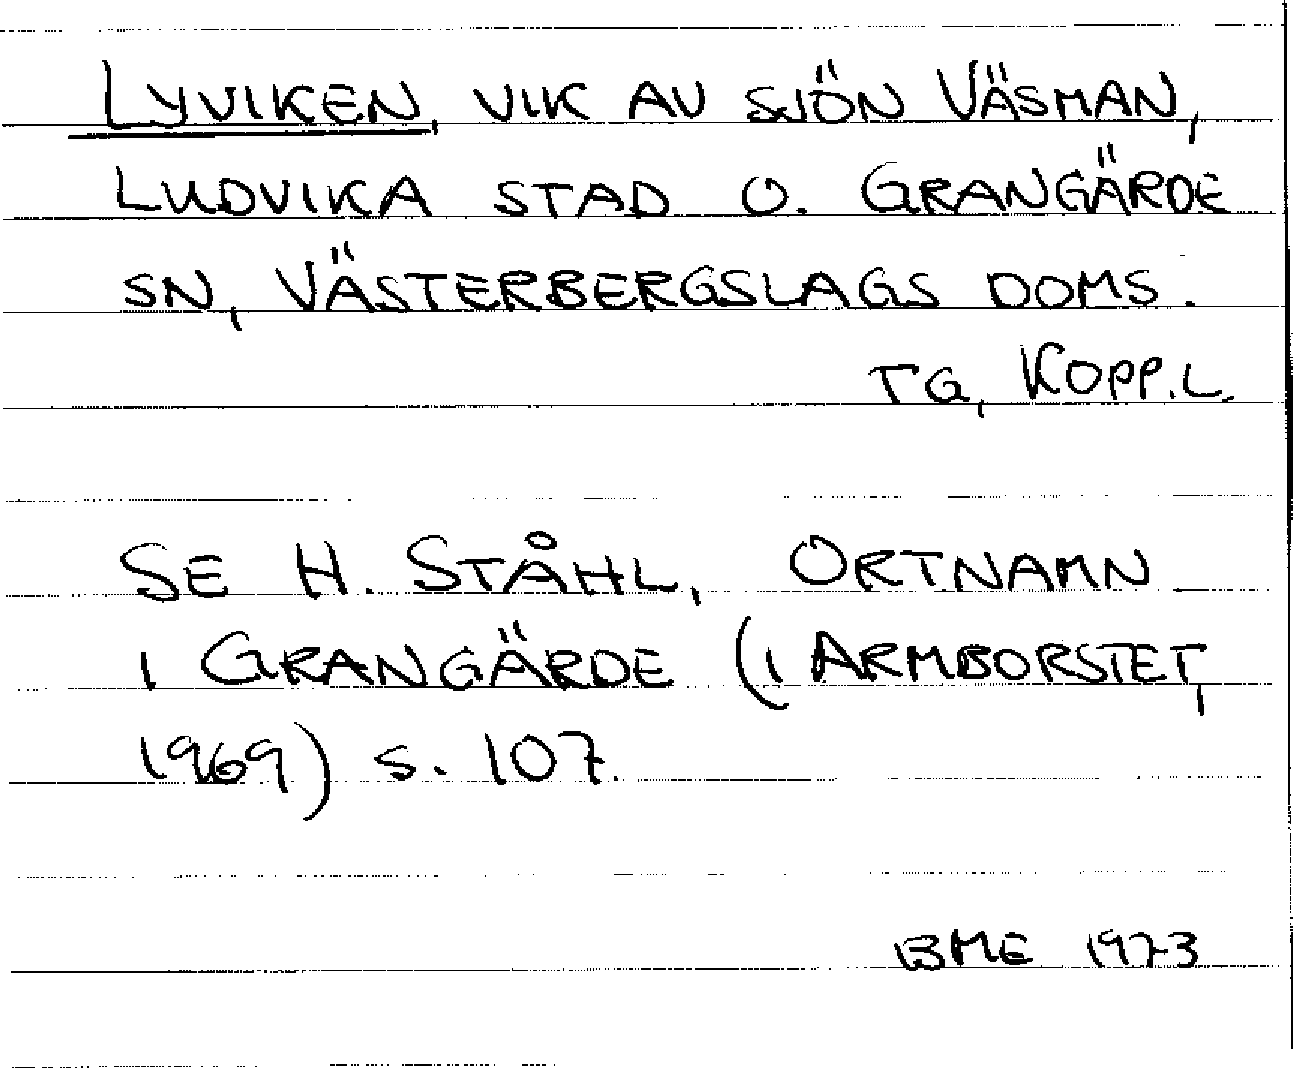 LYVIKEN, VIK AV SJÖN VÄSMAN,
LUDVIKA STAD O. GRANGÄRDE
SN, VÄSTERBERGSLAGS DOMS.
TG, KOPP.L.
SE H. STÅHL, ORTNAMN
I GRANGÄRDE (I ARMBORSTET,
1969) S. 107.
BME 1973